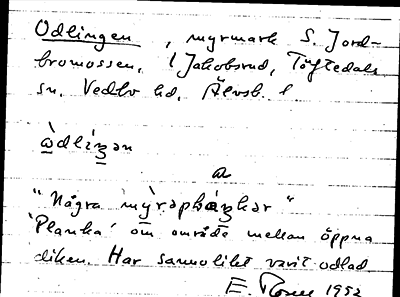 Odlingen, myrmark S. Jord-
bromossen, l Jakobsrud, Töftedals
sn, Vedbo hd, Älvsb. l
ὼdlíŋən
a
"Några mỳrəplaŋkər"
'Planka' om område mellan öppna
diken. Har sannolikt varit odlad
E. 1952